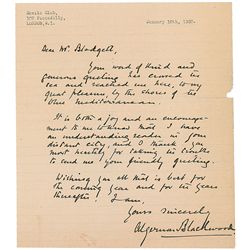 Savile Club,
LONDON, W.1.
January 10th,
Dear Mr Blodgett,
Your word of kind and
generous greeting has crossed the
sea and reached me here, to my
great pleasure, by the shores of the
blue Mediterranean.
It is both a joy and an encourage-
ment to me to know that I have
an understanding reader in your
distant city, and I thank you
most heartily for taking the trouble
to send me your friendly greeting.
Wishing you all that is best for
the coming year and for the years
thereafter! I am,
Yours sincerely
Algernon Blackwood